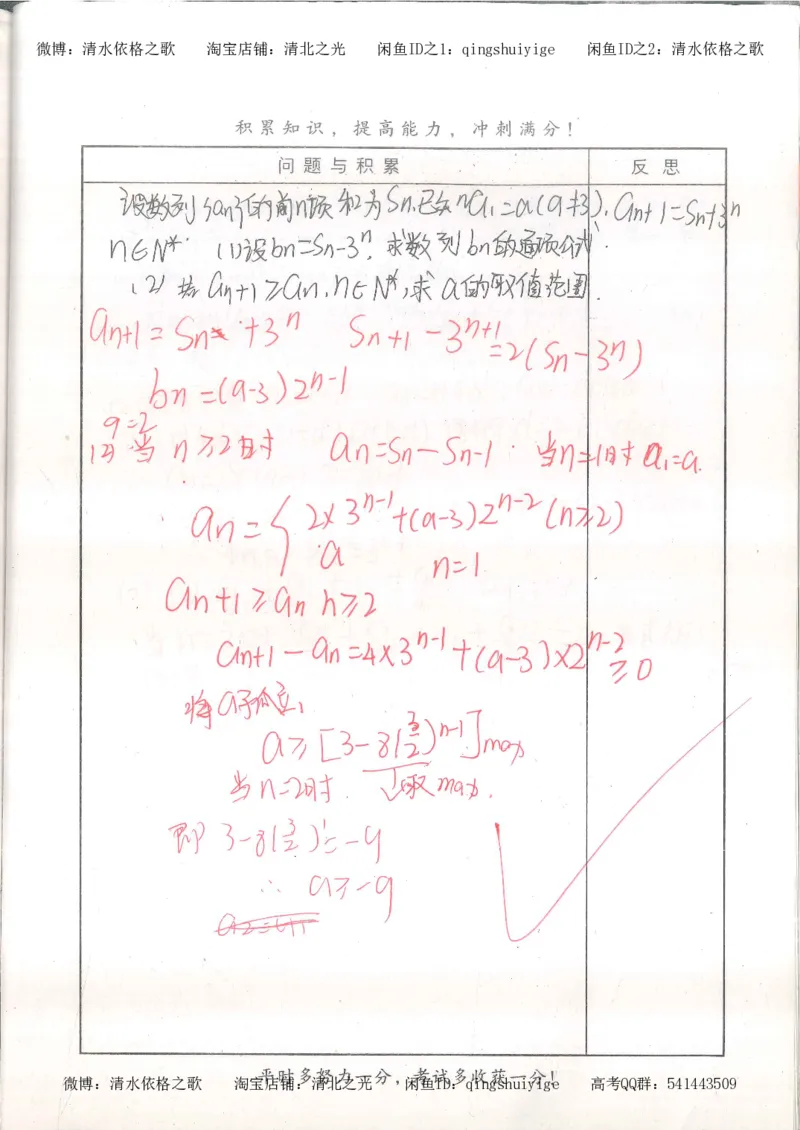 微博：清水依格之歌 淘宝店铺：清北之光 闲鱼ID之1：qingshuiyige 闲鱼ID之2：清水依格之歌
积累知识，提高能力，冲刺满分！
问题与积累 反思
设数列{an}的前n项和为Sn.已知a₁=a(a≠3), an+1=Sn+3ⁿ
n∈N*. (1)设bn=Sn-3ⁿ,求数列bn的通项公式.
(2)若an+1≥an,n∈N*,求a的取值范围.
an+1=Sn+3ⁿ Sn+1-3ⁿ⁺¹=2(Sn-3ⁿ)
bn=(a-3)2ⁿ⁻¹
q=2
(2)当n≥2时 an=Sn-Sn-1. 当n=1时a₁=a.
an={2×3ⁿ⁻¹+(a-3)2ⁿ⁻²(n≥2)
a n=1.
an+1≥an n≥2
an+1-an=4×3ⁿ⁻¹+(a-3)×2ⁿ⁻²≥0
将a孤立,
a≥[3-8(3/2)ⁿ⁻¹]max
当n=2时. ↓取max.
即 3-8(3/2)¹=-9
∴ a≥-9
平时多努力一分，考试多收获一分！
微博：清水依格之歌 淘宝店铺：清北之光 闲鱼ID：qingshuiyige 高考QQ群：541443509